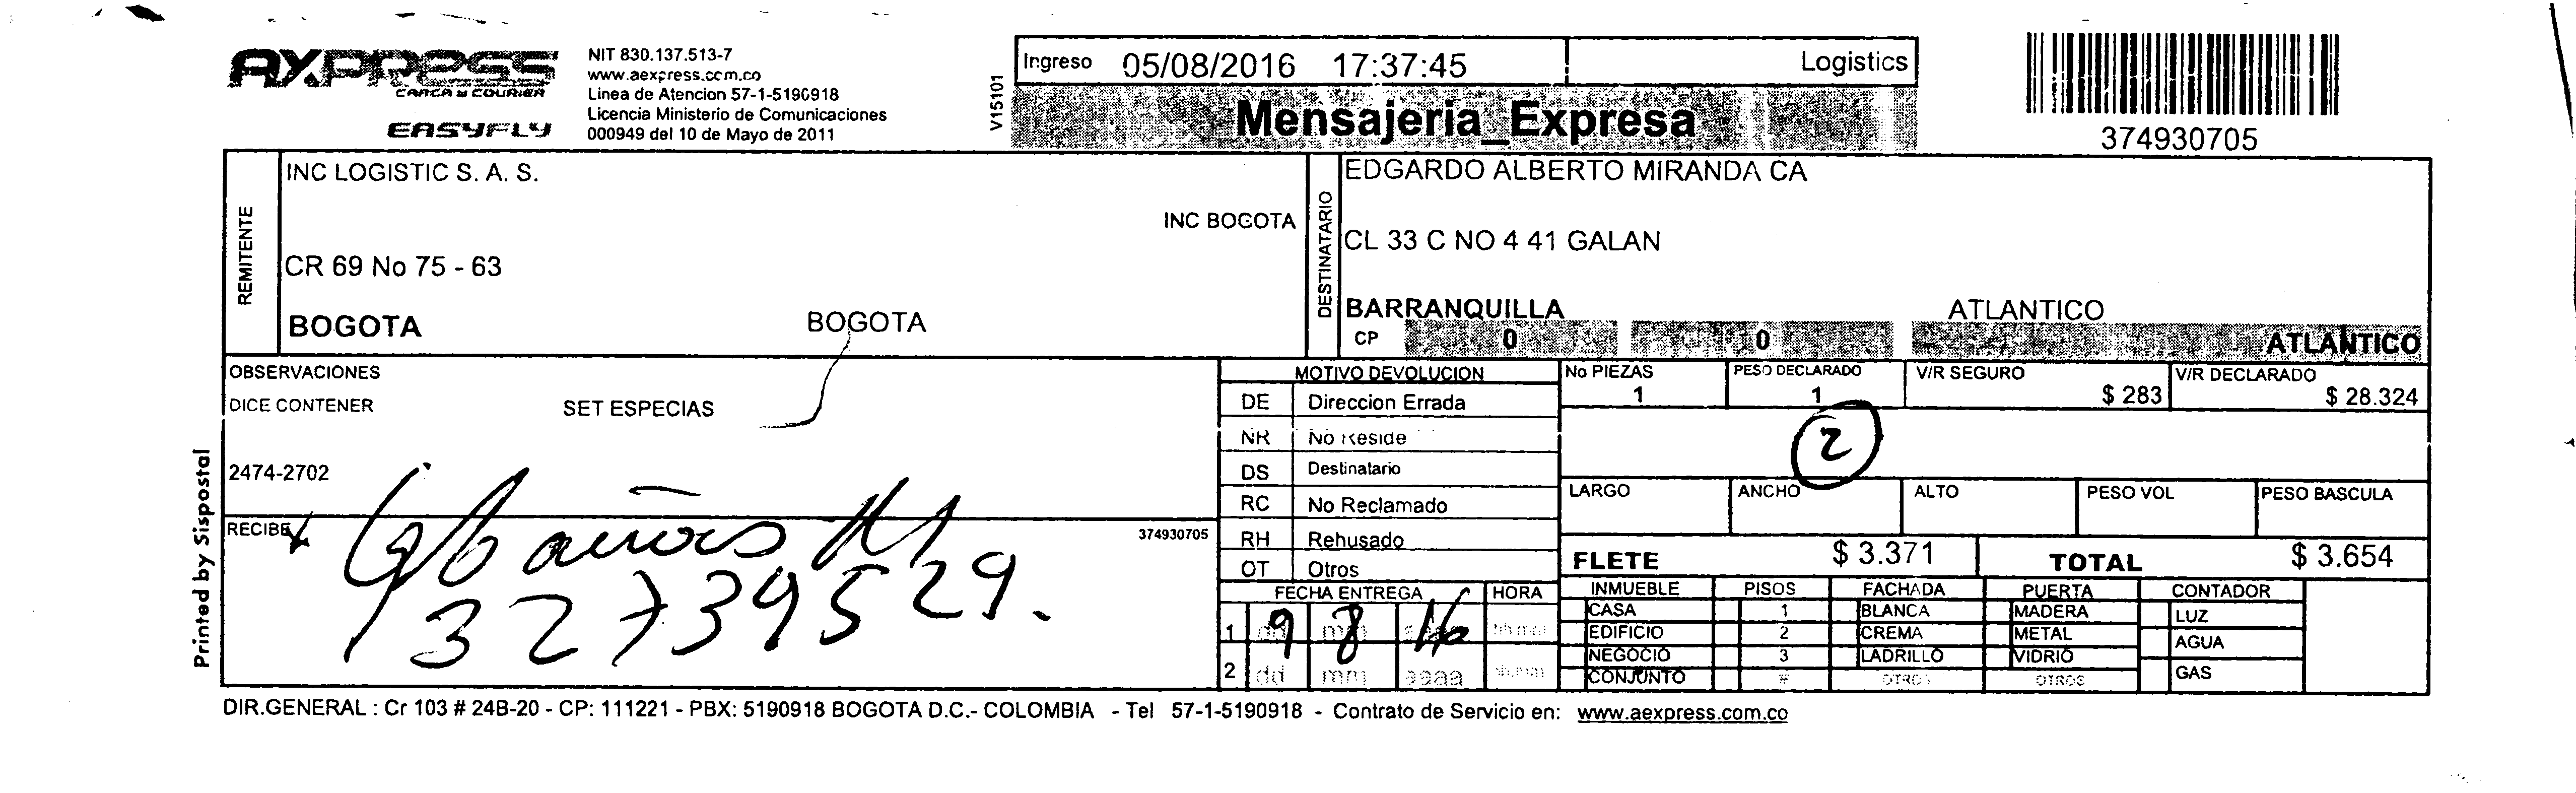 AXPRESS
CARGA & COURIER
EASYFLY
NIT 830.137.513-7
www.aexpress.com.co
Linea de Atencion 57-1-5190918
Licencia Ministerio de Comunicaciones
000949 del 10 de Mayo de 2011
V15101
Ingreso 05/08/2016 17:37:45 Logistics
Mensajeria_Expresa
374930705
REMITENTE
INC LOGISTIC S. A. S.
INC BOGOTA
CR 69 No 75 - 63
BOGOTA BOGOTA
DESTINATARIO
EDGARDO ALBERTO MIRANDA CA
CL 33 C NO 4 41 GALAN
BARRANQUILLA ATLANTICO
CP 0 0 ATLANTICO
OBSERVACIONES
DICE CONTENER SET ESPECIAS
2474-2702
RECIBE
32739529.
374930705
Printed by Sispostal
MOTIVO DEVOLUCION
DE Direccion Errada
NR No Reside
DS Destinatario
RC No Reclamado
RH Rehusado
OT Otros
FECHA ENTREGA HORA
1 dd mm aaaa
9 8 16
2 dd mm aaaa
No PIEZAS PESO DECLARADO V/R SEGURO V/R DECLARADO
1 1 $ 283 $ 28.324
2
LARGO ANCHO ALTO PESO VOL PESO BASCULA
FLETE $ 3.371 TOTAL $ 3.654
INMUEBLE PISOS FACHADA PUERTA CONTADOR
CASA 1 BLANCA MADERA LUZ
EDIFICIO 2 CREMA METAL AGUA
NEGOCIO 3 LADRILLO VIDRIO
CONJUNTO # OTROS OTROS GAS
DIR.GENERAL : Cr 103 # 24B-20 - CP: 111221 - PBX: 5190918 BOGOTA D.C.- COLOMBIA - Tel 57-1-5190918 - Contrato de Servicio en: www.aexpress.com.co